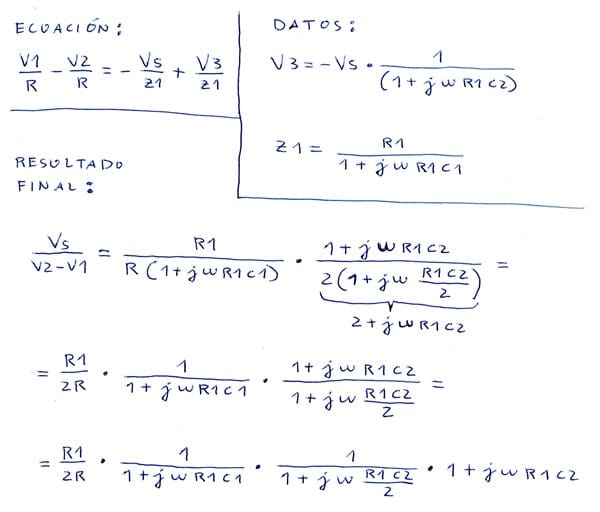 ECUACIÓN:
V1/R - V2/R = - Vs/Z1 + V3/Z1
DATOS:
V3 = -Vs · 1/(1 + jwR1C2)
Z1 = R1/(1 + jwR1C1)
RESULTADO
FINAL:
Vs/(V2-V1) = R1/(R(1+jwR1C1)) · (1+jwR1C2)/(2(1+jw R1C2/2)) =
2+jwR1C2
= R1/2R · 1/(1+jwR1C1) · (1+jwR1C2)/(1+jw R1C2/2) =
= R1/2R · 1/(1+jwR1C1) · 1/(1+jw R1C2/2) · 1+jwR1C2